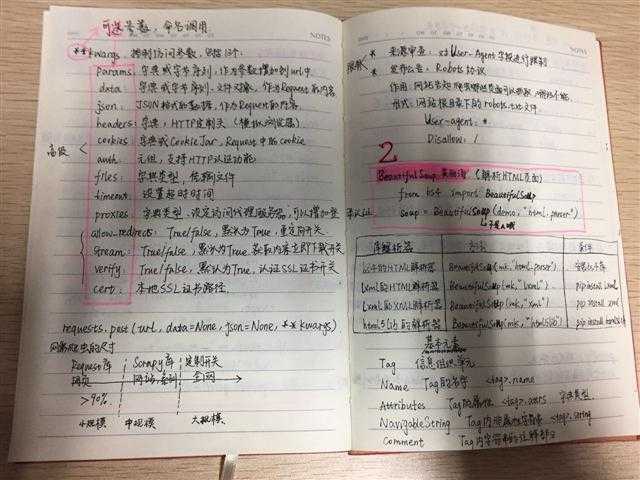 可选参数,命名调用
NOTES
**kwargs: 控制访问参数,包括13个:
params: 字典或字节序列,作为参数增加到url中
data: 字典或字节序列、文件对象,作为Request的内容
json: JSON格式的数据,作为Request的内容
headers: 字典,HTTP定制头(模拟浏览器)
cookies: 字典或CookieJar,Request中的cookie
高级
auth: 元组,支持HTTP认证功能
files: 字典类型,传输文件
timeout: 设置超时时间
proxies: 字典类型,设定访问代理服务器,可以增加登录认证
allow_redirects: True/false,默认为True,重定向开关
stream: True/false,默认为True,获取内容立即下载开关
verify: True/false,默认为True,认证SSL证书开关
cert: 本地SSL证书路径
requests.post(url, data=None, json=None, **kwargs)
网络爬虫的尺寸
Request库 Scrapy库 定制开关
网页 网站,系列 全网
>90%
小规模 中规模 大规模
NOTES
限制
* 来源审查: 对User-Agent字段进行限制
* 发布公告: Robots协议
作用: 网站告知爬虫哪些页面可以抓取,哪些不能
形式: 网站根目录下的robots.txt文件
User-agent: *
Disallow: /
2
BeautifulSoup 美丽汤 (解析HTML页面)
from bs4 import BeautifulSoup
soup = BeautifulSoup(demo, "html.parser")
库解析器 方法 条件
bs4的HTML解析器 BeautifulSoup(mk,"html.parser") 安装bs4库
lxml的HTML解析器 BeautifulSoup(mk,"lxml") pip install lxml
lxml的XML解析器 BeautifulSoup(mk,"xml") pip install lxml
html5lib的解析器 BeautifulSoup(mk,"html5lib") pip install html5lib
基本元素
Tag 信息组织单元
Name Tag的名字 <tag>.name
Attributes Tag的属性 <tag>.attrs 字典类型
NavigableString Tag内非属性字符串 <tag>.string
Comment Tag内字符串的注释部分